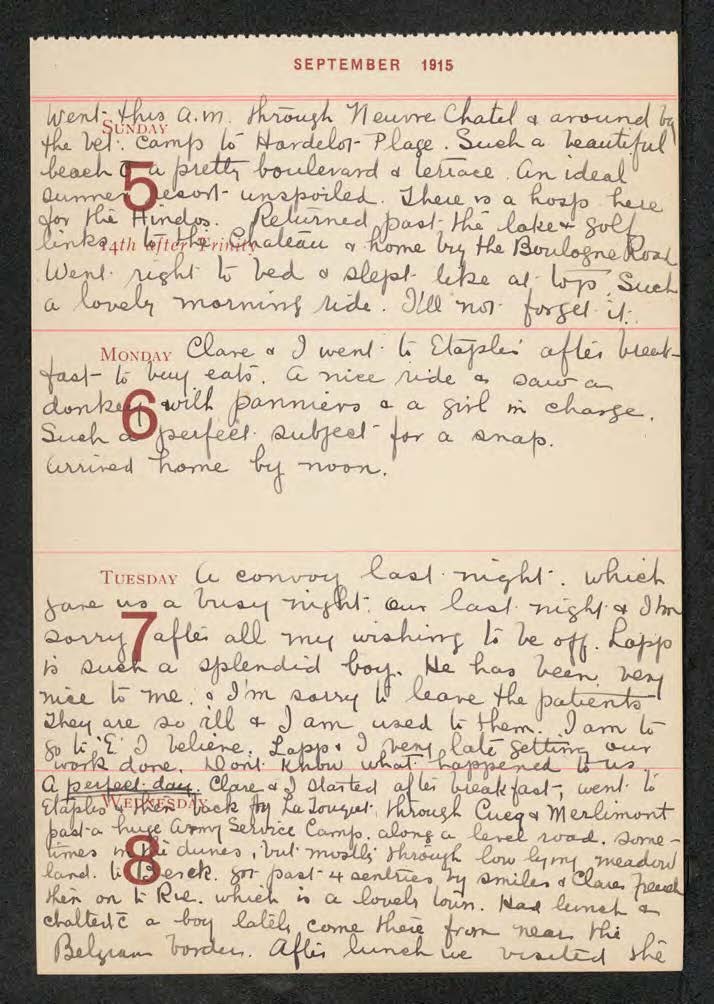 SEPTEMBER 1915
Went this a.m. through Neuvre Chatel & around by
SUNDAY
the vet. camp to Hardelot Plage. Such a beautiful
beach & a pretty boulevard & terrace. An ideal
5
summer resort unspoiled. There is a hosp here
for the Hindos. Returned past the lake & golf
14th after Trinity
links, to the Chateau & home by the Boulogne Road
Went right to bed & slept like at top. Such
a lovely morning ride. I'll not forget it.
MONDAY Clare & I went to Etaples after break-
fast to buy eats. A nice ride & saw a
6
donkey with panniers & a girl in charge.
Such a perfect subject for a snap.
Arrived home by noon.
TUESDAY A convoy last night. which
gave us a busy night. Our last night & I'm
7
sorry after all my wishing to be off. Lapp
is such a splendid boy. He has been very
nice to me. & I'm sorry to leave the patients
They are so ill & I am used to them. I am to
go to 'E' I believe. Lapp & I very late getting our
work done. Dont know what happened to us
A perfect day. Clare & I started after breakfast, went to
WEDNESDAY
Etaples & then back by La Touquet through Cucq & Merlimont
past a huge Army Service Camp. along a level road. some-
8
times in the dunes, but mostly through low lying meadow
land. to Berck. got past 4 sentries by smiles & Clares french
then on to Rue. which is a lovely town. Had lunch &
chatted c a boy lately come there from near the
Belgian border. After lunch we visited the